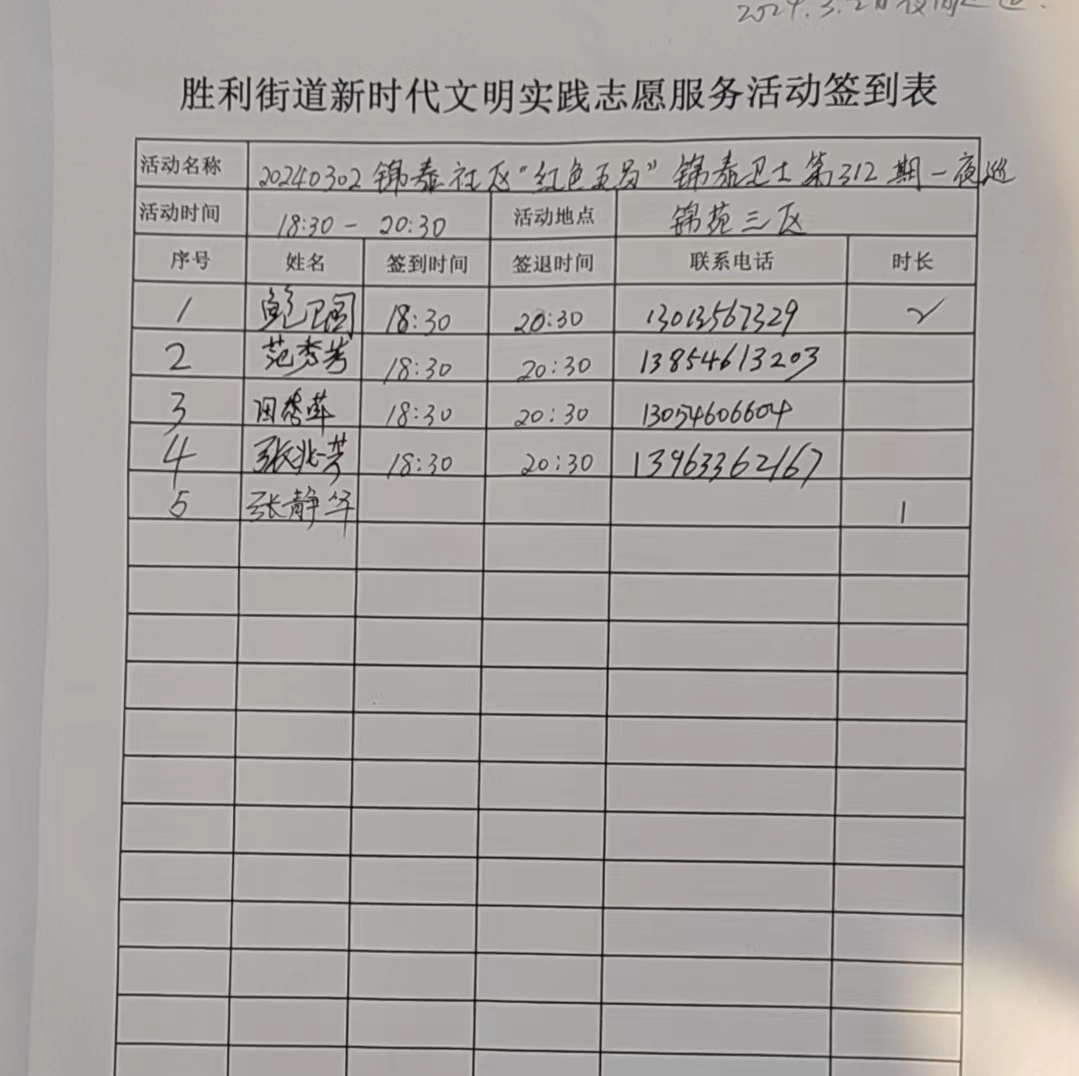 2024.3.2日夜间巡逻.
胜利街道新时代文明实践志愿服务活动签到表
活动名称 20240302 锦泰社区"红色五员"锦泰卫士第312期一夜巡
活动时间 18:30 - 20:30 活动地点 锦苑三区
序号 姓名 签到时间 签退时间 联系电话 时长
1 鲍卫国 18:30 20:30 13013567329 2
2 范秀芳 18:30 20:30 13854613203
3 18:30 20:30 13054606604
4 张兆芳 18:30 20:30 13963362167
5 张静华 1